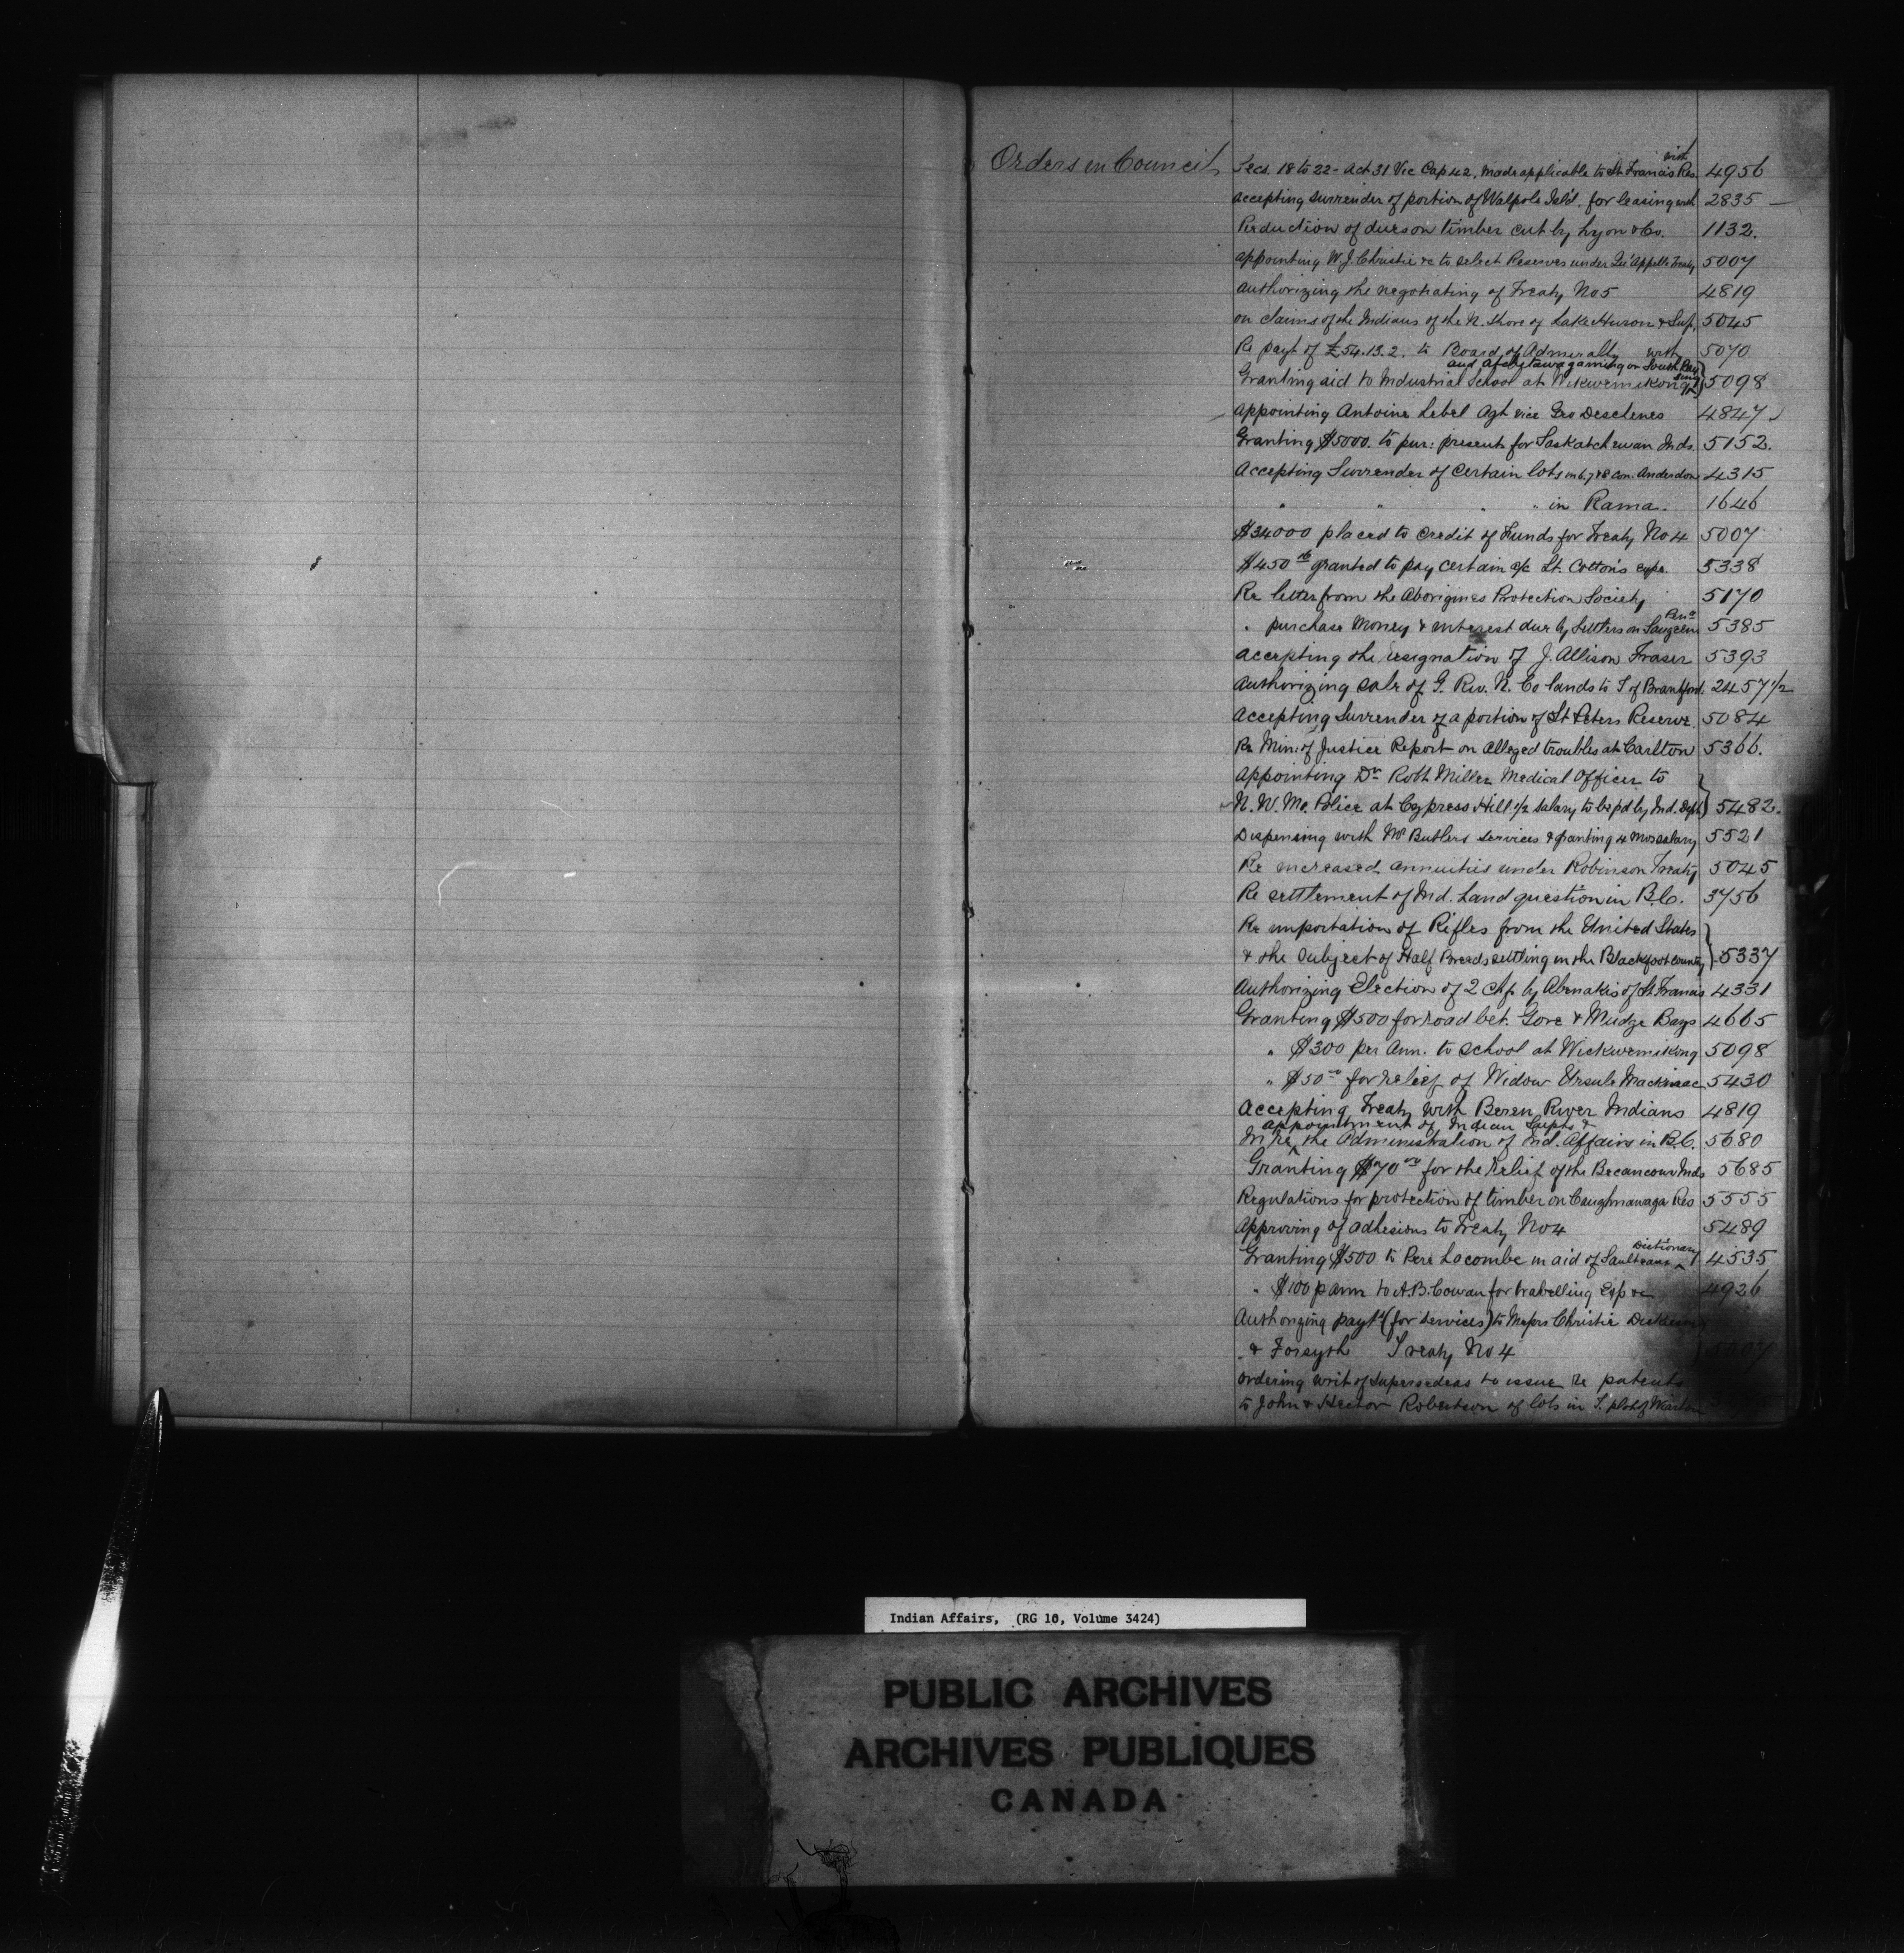 Orders in Council
with
Secs. 18 to 22 - Act 31 Vic Cap 42, made applicable to St Francis Res. 4956
accepting surrender of portion of Walpole Isl'd. for leasing with 2835 —
Reduction of dues on timber cut by Lyon & Co. 1132.
appointing W. J. Christie &c to select Reserves under Qu'Appelle Treaty 5007
authorizing the negotiating of Treaty No 5 4819
on claims of the Indians of the N. Shore of Lake Huron & Sup. 5045
Re payt of £54.13.2. to Board of Admiralty with 5070
and on South Bay
Granting aid to Industrial School at Wikwemikong 5098
Appointing Antoine Lebel Agt vice Geo Deschenes 4847
Granting $5000. to pur: presents for Saskatchewan Inds. 5152.
Accepting Surrender of Certain lots in 6, 7 & 8 Con. Anderdon 4315
" " " " in Rama. 1646
$34000 placed to credit of Funds for Treaty No 4 5007
$450 granted to pay certain a/c Lt. Cotton's expe. 5338
Re letter from the Aborigines Protection Society 5170
Pena
" purchase Money & interest due by Settlers on Saugeen 5385
accepting the resignation of J. Allison Fraser 5393
Authorizing sale of G. Riv. N. Co lands to T of Brantford. 2457 1/2
Accepting Surrender of a portion of St Peters Reserve 5084
Re Min: of Justice Report on alleged troubles at Carlton 5366.
Appointing Dr Robt Miller Medical Officer to
N. W. Mo. Police at Cypress Hill 1/2 salary to be pd by Ind. Dept 5482.
Dispensing with Mr Butlers services & granting 4 mos salary 5521
Re increased annuities under Robinson Treaty 5045
Re settlement of Ind. Land question in B.C. 3756
Re importation of Rifles from the United States
& the subject of Half Breeds settling in the Blackfoot County 5337
Authorizing Election of 2 Chfs by Abenakis of St. Francis 4331
Granting $500 for road bet. Gore & Mudge Bays 4665
" $300 per Ann. to School at Wickwemikong 5098
" $50 for relief of Widow Ursule Mackinac 5430
Accepting Treaty with Beren River Indians 4819
appointment of Indian Supts &
In re ^ the Administration of Ind. Affairs in B.C. 5680
Granting $70 for the relief of the Becancour Inds 5685
Regulations for protection of timber on Caughnawaga Res 5555
Approving of adhesions to Treaty No 4 5489
Dictionary
Granting $500 to Pere Lacombe in aid of Saulteaux ^ 4535
" $100 p ann to A. B. Cowan for travelling Exp &c 4926
Authorizing payt (for services) to Messrs Christie Dickieson
" & Forsyth Treaty No 4
ordering writ of Supersedeas to issue re patents
to John & Hector Robertson of lots in T. plot of Wiarton
Indian Affairs, (RG 10, Volume 3424)
PUBLIC ARCHIVES
ARCHIVES PUBLIQUES
CANADA